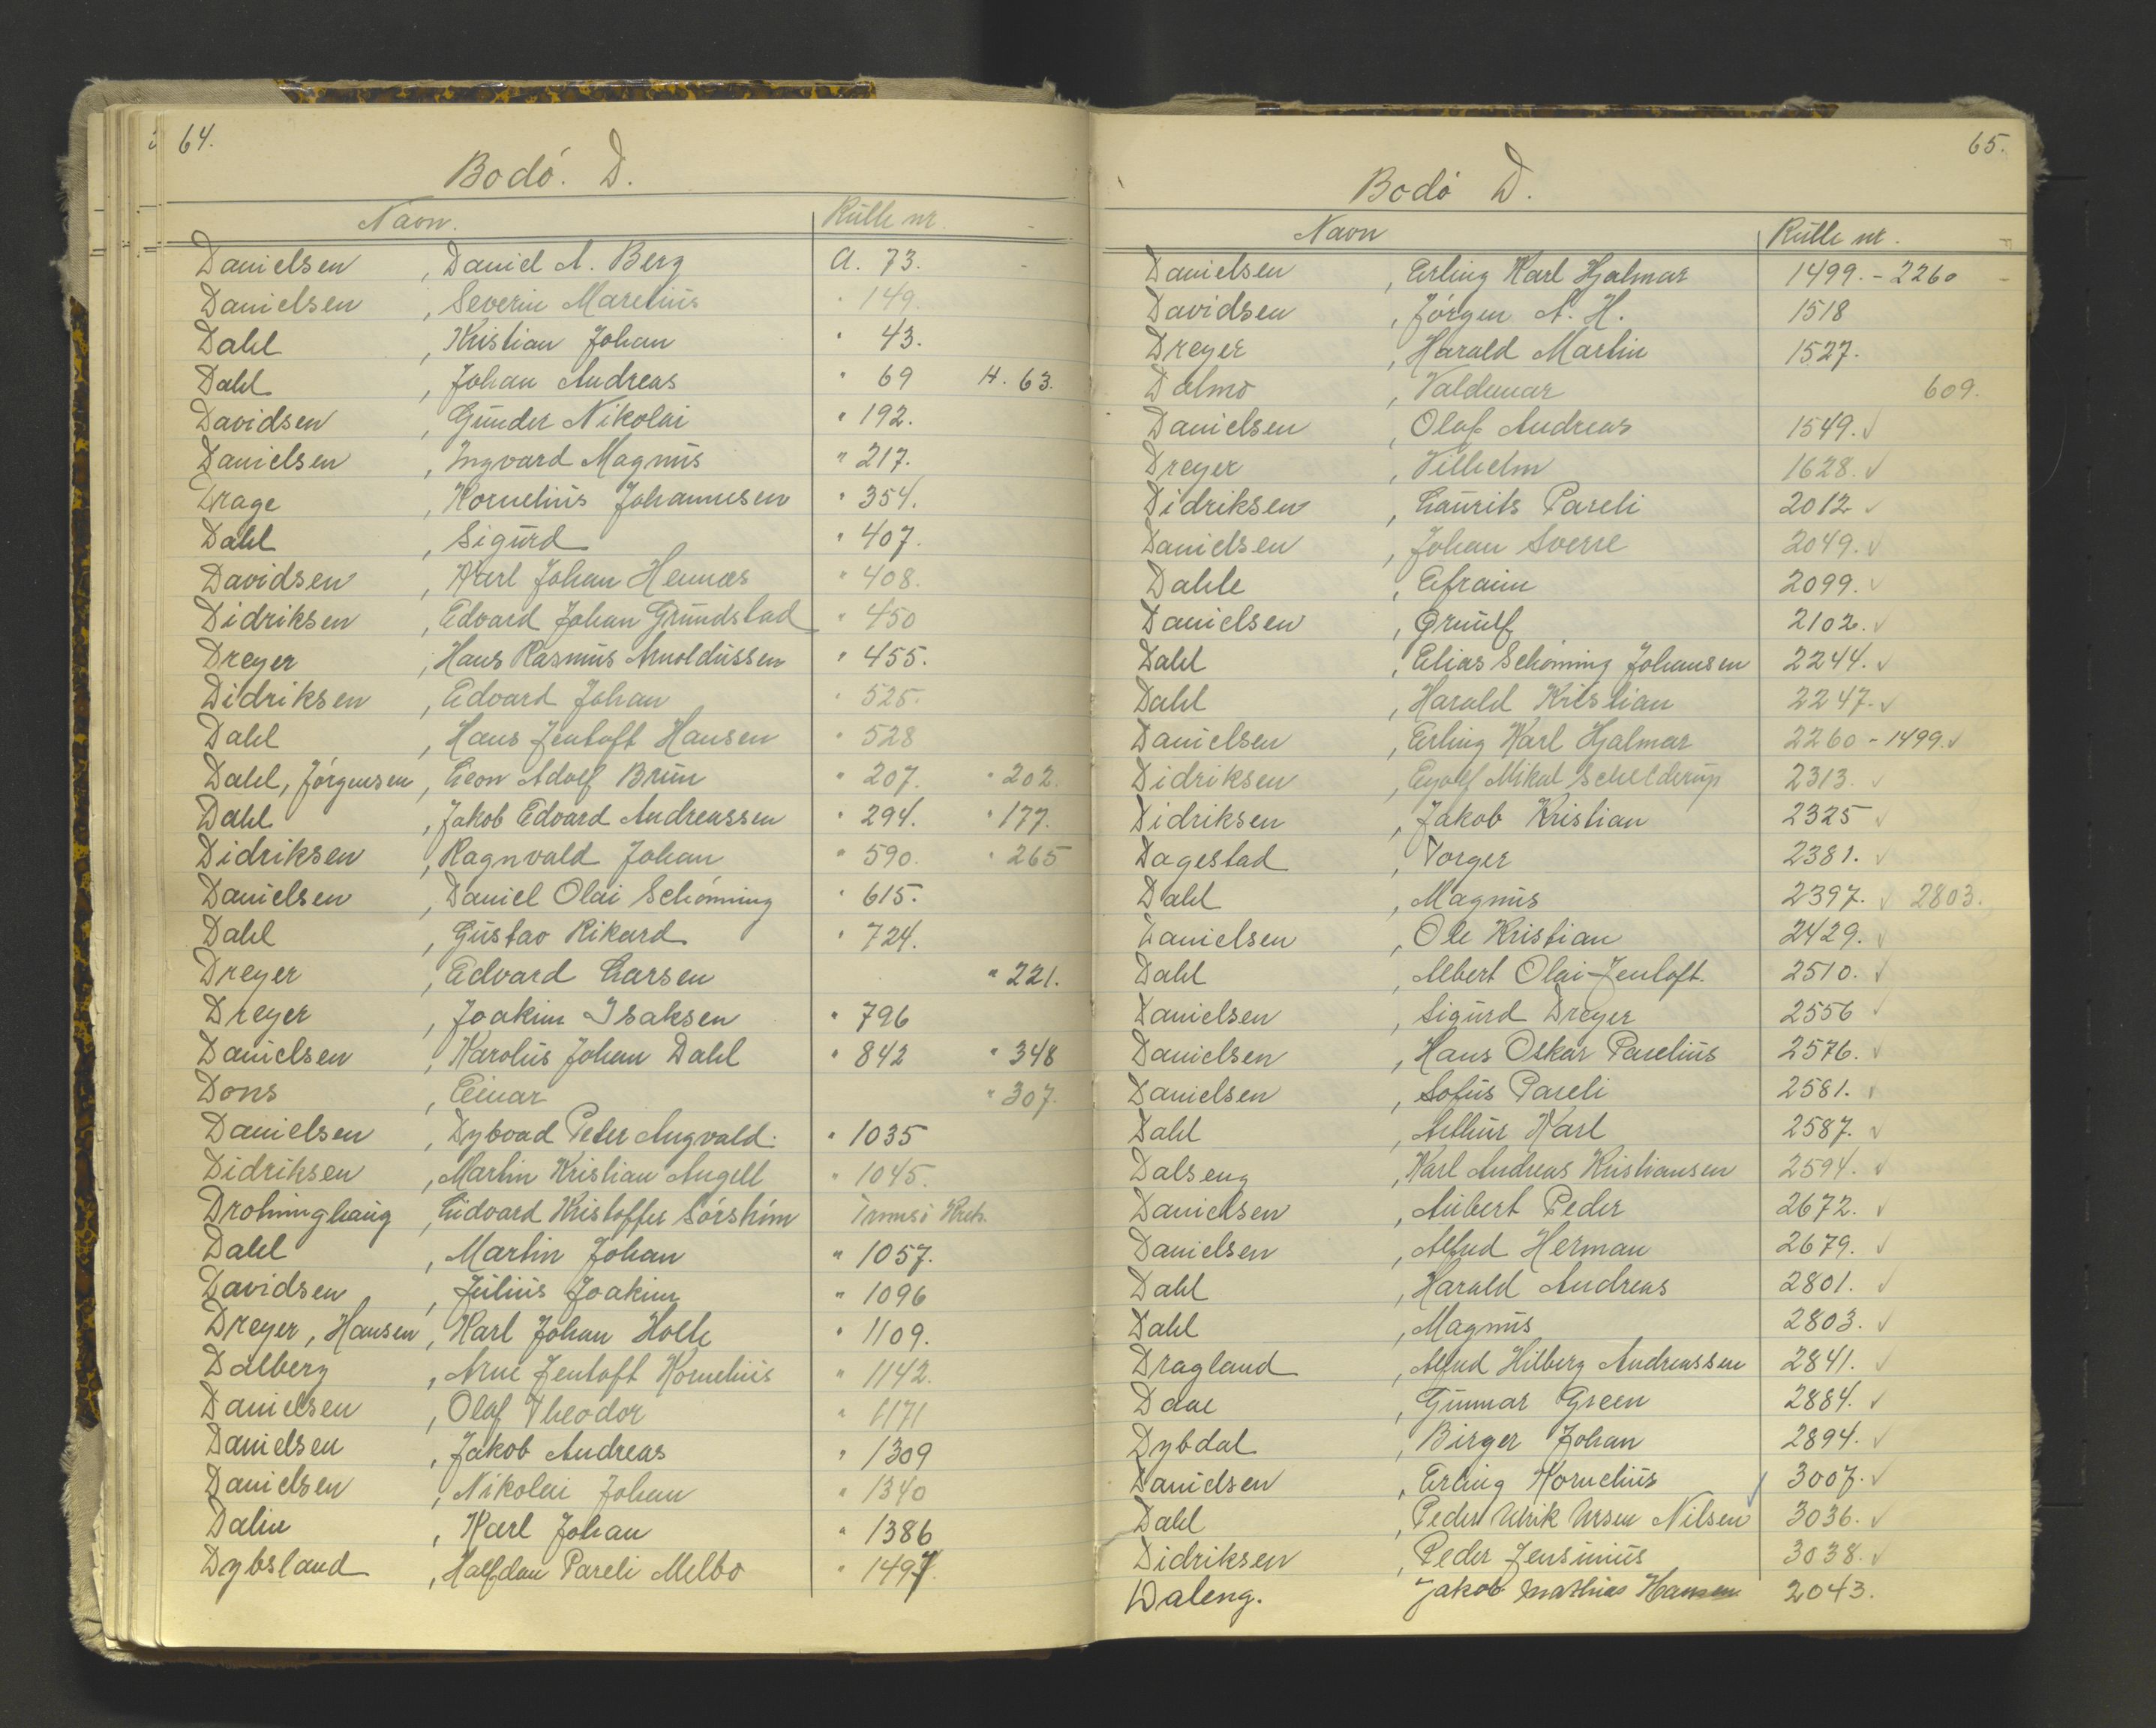 64.
Bodó. D.
Navn. Rulle nr.
Danielsen , Daniel A. Berg A. 73.
Danielsen , Severin Marelius " 149.
Dahl , Kristian Johan " 43.
Dahl , Johan Andreas " 69 H. 63.
Davidsen , Gunder Nikolai " 192.
Danielsen , Ingvard Magnus " 217.
Drage , Kornelius Johannesen " 354.
Dahl , Sigurd " 407.
Davidsen , Karl Johan Hennæs " 408.
Didriksen , Edvard Johan Grundstad " 450
Dreyer , Hans Rasmus Arnoldussen " 455.
Didriksen , Edvard Johan " 525.
Dahl , Hans Jentoft Hansen " 528
Dahl, Jörgensen , Leon Adolf Brun " 207. " 202.
Dahl , Jakob Edvard Andreassen " 294. " 177.
Didriksen , Ragnvald Johan " 590. " 265
Danielsen , Daniel Olai Schönning " 615.
Dahl , Gustav Rikard " 724.
Dreyer , Edvard Larsen " 221.
Dreyer , Joakim Isaksen " 796
Danielsen , Karolus Johan Dahl " 842 " 348
Dons , Einar " 307.
Danielsen , Dybvad Peter Angvald. " 1035
Didriksen , Martin Kristian Angell " 1045.
Drotninghaug , Eidvard Kristoffer Sórström Tromsö Krets.
Dahl , Martin Johan " 1057.
Davidsen , Julius Joakim " 1096
Dreyer, Hansen , Karl Johan Holte " 1109.
Dalberg , Arne Jentoft Kornelius " 1142.
Danielsen , Olaf Theodor " 1171
Danielsen , Jakob Andreas " 1309
Danielsen , Nikolai Johan " 1340
Dalin , Karl Johan " 1386
Dybsland , Halfdan Pareli Melbo " 1497.
65.
Bodó D.
Navn Rulle nr.
Danielsen , Erling Karl Hjalmar 1499. - 2260
Davidsen , Jörgen A. H. 1518
Dreyer , Harald Martin 1527.
Dalmo , Valdemar 609.
Danielsen , Olaf Andreas 1549. ✓
Dreyer , Vilhelm 1628. ✓
Didriksen , Laurits Pareli 2012 ✓
Danielsen , Johan Sverre 2049. ✓
Dahle , Efraim 2099. ✓
Danielsen , Grunulf 2102. ✓
Dahl , Elias Schönning Johansen 2244. ✓
Dahl , Harald Kristian 2247. ✓
Danielsen , Erling Karl Hjalmar 2260 - 1499. ✓
Didriksen , Eyolf Mikal Schelderup 2313. ✓
Didriksen , Jakob Kristian 2325 ✓
Dagestad , Torger 2381. ✓
Dahl , Magnus 2397. ✓ 2803.
Danielsen , Ole Kristian 2429. ✓
Dahl , Albert Olai Jentoft. 2510. ✓
Danielsen , Sigurd Dreyer 2556 ✓
Danielsen , Hans Oskar Parelius 2576. ✓
Danielsen , Sofus Pareli 2581. ✓
Dahl , Arthur Karl 2587. ✓
Dalseng , Karl Andreas Kristiansen 2594. ✓
Danielsen , Aubert Peder 2672. ✓
Danielsen , Alfred Herman 2679. ✓
Dahl , Harald Andreas 2801. ✓
Dahl , Magnus 2803. ✓
Dragland , Alfred Hilberg Andreassen 2841. ✓
Daae , Gunnar Green 2884. ✓
Dybdal , Birger Johan 2894. ✓
Danielsen , Erling Kornelius ✓ 3007. ✓
Dahl , Peder Ulrik Ursen Nilsen 3036. ✓
Didriksen , Peder Jensinius 3038. ✓
Daleng. Jakob Mathias Hansen 2043.